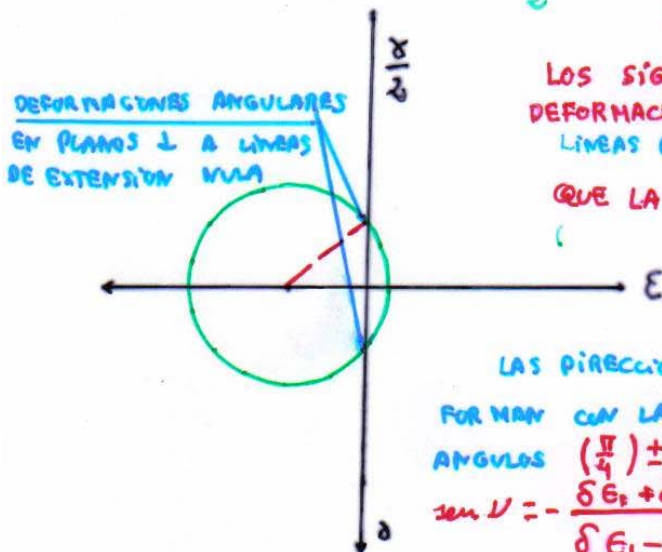 γ/2
DEFORMACIONES ANGULARES
EN PLANOS ⊥ A LINEAS
DE EXTENSION NULA
LOS SIG
DEFORMAC
LINEAS
QUE LA
ε
LAS DIRECCI
FORMAN CON LA
ANGULOS (π/4) ±
sen ν = - δ ε₁ +
δ ε₁ -